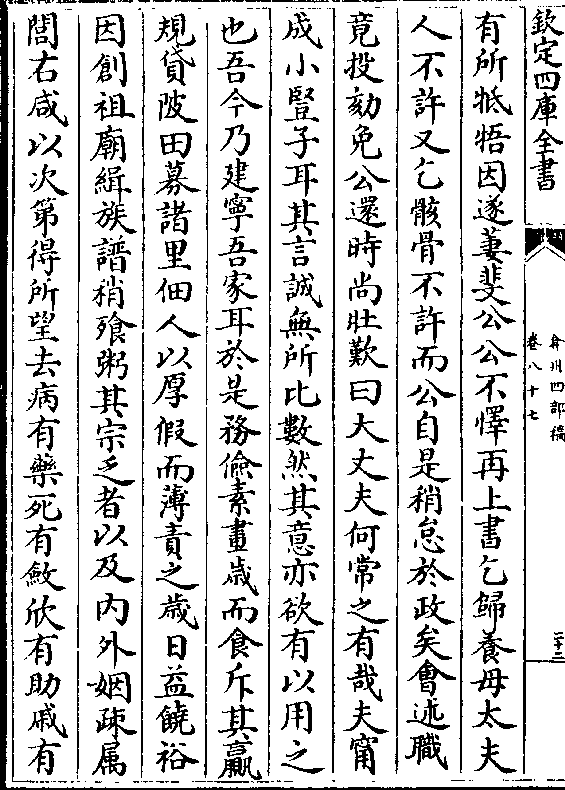 欽定四庫全書
弇州四部稿
卷八十七
二十二
有所牴牾因遂萋斐公公不懌再上書乞歸養母太夫
人不許又乞骸骨不許而公自是稍怠於政矣會述職
竟投劾免公還時尚壯歎曰大丈夫何常之有哉夫甯
成小豎子耳其言誠無所比數然其意亦欲有以用之
也吾今乃建寧吾家耳於是務儉素畫歳而食斥其贏
規貸陂田募諸里佃人以厚假而薄責之歳日益饒裕
因創祖廟緝族譜稍飱粥其宗乏者以及内外姻疎属
閭右咸以次第得所望去病有藥死有斂欣有助戚有